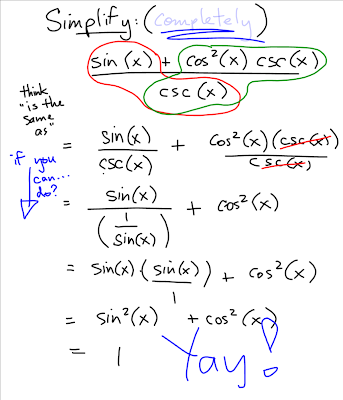 Simplify: (completely)
sin (x) + cos²(x) csc(x)
csc (x)
think
"is the
same
as"
= sin(x) / csc(x) + cos²(x) (csc(x)) / csc(x)
if you
can...
do?
= sin(x) / (1 / sin(x)) + cos²(x)
= sin(x) (sin(x) / 1) + cos²(x)
= sin²(x) + cos²(x)
= 1 Yay!